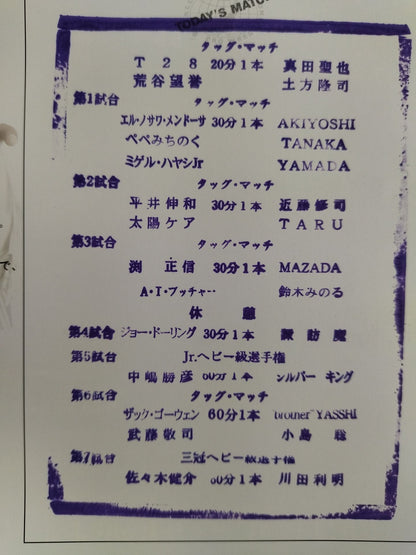 TODAY'S MATCH
タッグ・マッチ
T28 20分1本 真田聖也
荒谷望誉 土方隆司
第1試合 タッグ・マッチ
エル・ノサワ・メンドーサ 30分1本 AKIYOSHI
ペペみちのく TANAKA
ミゲル・ハヤシJr YAMADA
第2試合 タッグ・マッチ
平井伸和 30分1本 近藤修司
太陽ケア TARU
第3試合 タッグ・マッチ
渕正信 30分1本 MAZADA
A・I・ブッチャー 鈴木みのる
休憩
第4試合 ジョー・ドーリング 30分1本 諏訪魔
第5試合 Jr.ヘビー級選手権
中嶋勝彦 60分1本 シルバー キング
第6試合 タッグ・マッチ
ザック・ゴーウェン 60分1本 "brother"YASSHI
武藤敬司 小島聡
第7試合 三冠ヘビー級選手権
佐々木健介 60分1本 川田利明